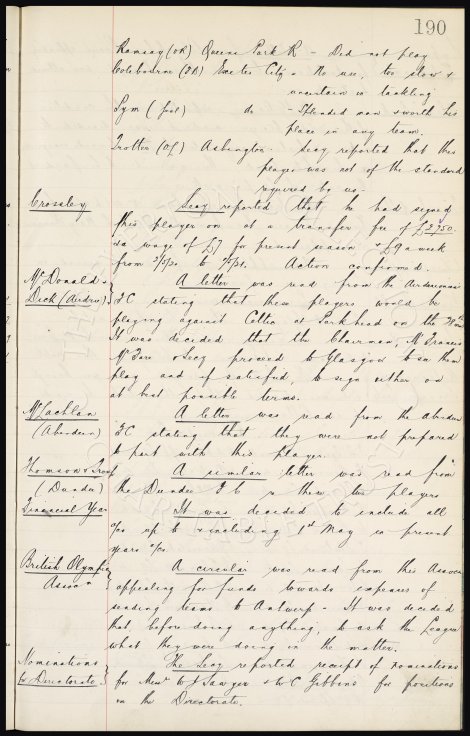 190
Ramsay (OR) Queens Park R - Did not play
Colebourne (IR) Exeter City - No use, too slow &
uncertain in tackling
Sym (goal) do - Splendid man & worth his
place in any team.
Trotter (OL) Ashington - Secy reported that this
player was not of the standard
required by us.
Crossley Secy reported that he had signed
this player on at a transfer fee of £2750.
& a wage of £7 for present season & £9 a week
from to Action confirmed.
McDonald & A letter was read from the Airdrieonians
Dick (Airdrie) FC stating that these players would be
playing against Celtic at Parkhead on the
It was decided that the Chairman, Mr Francis
Mr & Secy proceed to Glasgow to see them
play and if satisfied, to sign either on
at best possible terms.
McLachlan A letter was read from the Aberdeen
(Aberdeen) FC stating that they were not prepared
to part with this player.
Thomson & A similar letter was read from
(Dundee) the Dundee F C re these two players
Financial Year It was decided to include all
a/cs up to & including 1st May in present
years a/cs.
British Olympic A circular was read from this Assocn
Assocn appealing for funds towards expenses of
sending teams to Antwerp - It was decided
that, before doing anything, to ask the League
what they were doing in the matter.
Nominations The Secy reported receipt of nominations
for Directorate. for Messrs W J Sawyer & W C Gibbins for positions
on the Directorate.